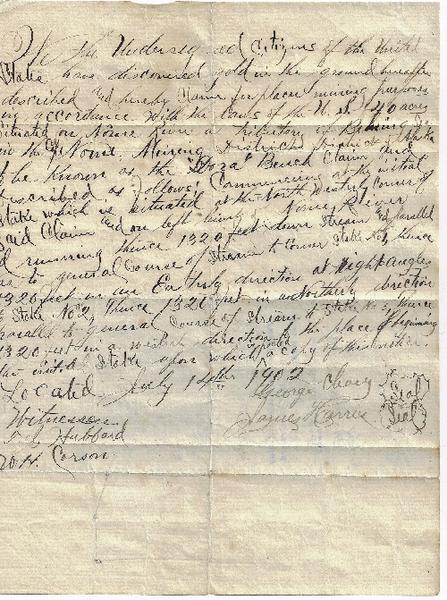 We The Undersigned Citizens of the United
State have discovered gold in the ground hereafter
described and hereby Claim for placer mining purposes
in accordance With the laws of the U.S. 40 acres
situated on Nome River a tributary of Behring
in the Nome Mining District and
be known as the "Dora" Bench Claim and
described as follows; Commencing at the initial
Stake which is situated at the North Westerly Corner of
Said Claim and on left Nome River
running thence 1320 feet down Stream and parallel
to general Course of Stream to Corner Stake No 1, thence
1320 feet in an Easterly direction at Right angles
to Stake No 2, thence 1320 feet in a Northerly direction
parallel to general Course of Stream to Stake No 3, thence
1320 feet in a westerly direction to the place of beginning
the initial Stake upon which is posted a copy of this notice.
Located July 14th 1902
George
James Harris
Seal
Seal
Witnesses
Hubbard
W. H. Corson